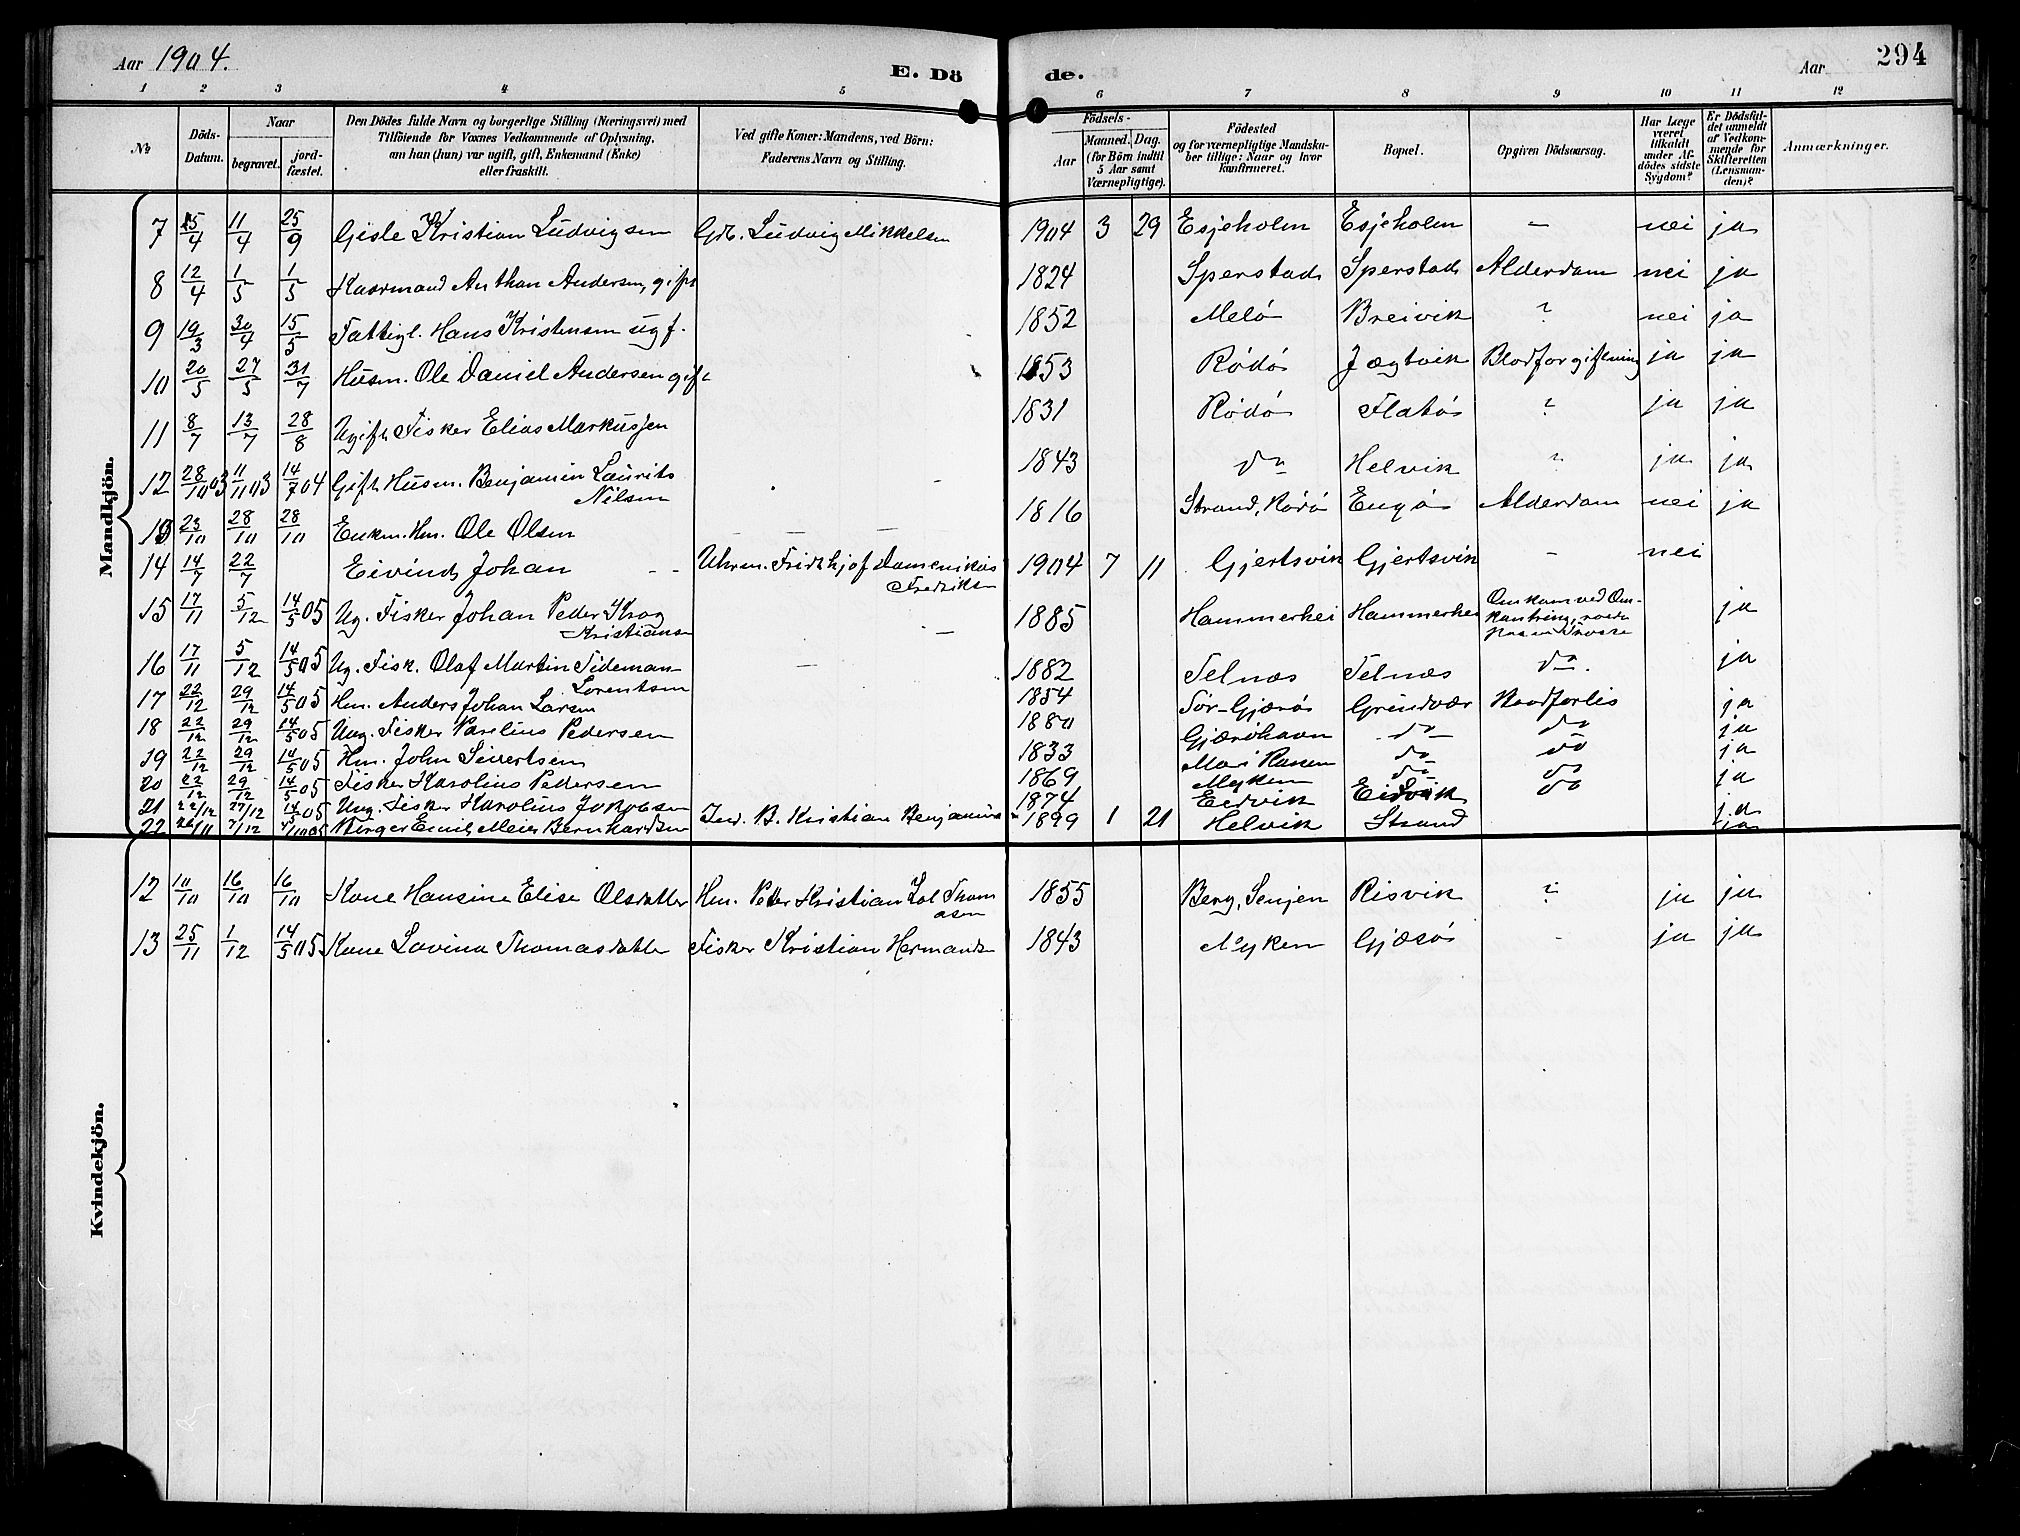 Aar 1904. E. Dö de. Aar 294
1 2 3 4 5 6 7 8 9 10 11 12
№ Döds-Datum. Naar begravet. jord-fæstet. Den Dödes fulde Navn og borgerlige Stilling (Næringsvei) med Tilföiende for Voxnes Vedkommende af Oplysning, om han (hun) var ugift, gift, Enkemand (Enke) eller fraskilt. Ved gifte Koner: Mandens, ved Börn: Faderens Navn og Stilling. Födsels- Aar Maaned. Dag. (for Börn indtil 5 Aar samt Værnepligtige). Födested og for værnepligtige Mandskaber tillige: Naar og hvor konfirmeret. Bopæl. Opgiven Dödsaarsag. Har Læge været tilkaldt under Afdödes sidste Sygdom? Er Dödsfaldet anmeldt af Vedkommende for Skifteretten (Lensmanden)? Anmærkninger.
Mandkjön.
7 5/4 11/4 25/9 Gisle Kristian Ludvigsen Gdb. Ludvig Mikkelsen 1904 3 29 Esjeholm Esjeholm – nei ja
8 12/4 1/5 1/5 Kaarmand Anthon Andersen, gift 1824 Sperstad Sperstad Alderdom nei ja
9 19/3 30/4 15/5 Fattigl. Hans Kristensen ugf. 1852 Melø Breivik ? nei ja
10 20/5 27/5 31/7 Husm. Ole Daniel Andersen gift 1853 Rødø Jægtvik Blodforgiftning ja ja
11 8/7 13/7 28/8 Ugift Fisker Elias Markussen 1831 Rødø Flatø ? ja ja
12 28/10 03 11/11 03 14/7 04 Gift Husm. Benjamin Laurits Nilsen – 1843 do Helvik ? ja ja
13 23/10 28/10 28/10 Enkm. Hm. Ole Olsen – – 1816 Strand, Rødø Engø Alderdom nei ja
14 14/7 22/7 Eivind Johan – – Uhrm. Fridthjof Domenikus Fredriksen 1904 7 11 Gjertsvik Gjertsvik – nei
15 17/11 5/12 14/5 05 Ug. Fisker Johan Peder Krog Kristiansen – 1885 Hammerhei Hammerhei Omkom ved Omkantring, ja
16 17/11 5/12 14/5 05 Ug. Fisk. Olaf Martin Tideman Lorentsen – 1882 Selnæs Selnæs do. ja
17 22/12 29/12 14/5 05 Hm. Anders Johan Larsen 1854 Sør-Gjærø Grindvær Baadforlis ja
18 22/12 29/12 14/5 05 Ung. Fisker Parelius Pedersen 1880 Gjærøhavn do do ja
19 22/12 29/12 14/5 05 Hm. John Sivertsen 1833 Mo i Ranen do do ja
20 22/12 29/12 14/5 05 Fisker Karolius Pedersen 1869 Myken do do ja
21 22/12 29/12 14/5 05 Ung. Fisker Karolius Jakobsen 1874 Eidvik Eidvik do ja
22 26/11 Birger Emil Meier Bernhardsen Ind. B. Kristian Benjamins 1899 1 21 Helvik Strand ja
Kvindekjön.
12 10/10 16/10 16/10 Kone Hansine Elise Olsdatter Hm. Peder Kristian Kol Thomasen 1855 Berg, Senjen Risvik ? ja ja
13 25/11 1/12 14/5 05 Kone Lovina Thomasdatter Fisker Kristian Hermands 1843 Myken Gjærø – ja ja